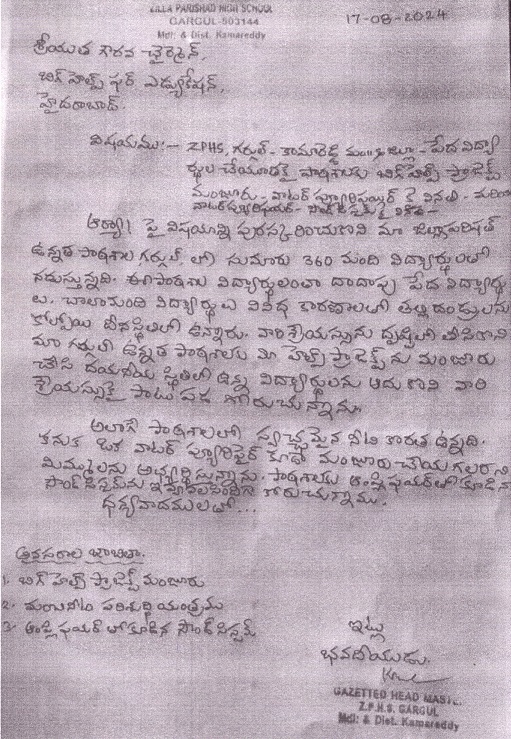 ZILLA PARISHAD HIGH SCHOOL
GARGUL-503144
Mdl: & Dist. Kamareddy
17-08-2024
శ్రీయుత గౌరవ చైర్మెన్,
బిగ్ హెల్ప్ ఫర్ ఎడ్యుకేషన్,
హైదరాబాద్.
విషయము:- ZPHS, గర్గుల్ - కామారెడ్డి మం॥ & జిల్లా - పేద విద్యా
ర్థుల చేయూతకై పాఠశాలకు బిగ్ హెల్ప్ ప్రాజెక్ట్
మంజూరు - వాటర్ ప్యూరిఫయర్ కై వినతి -
వాటర్ ప్యూరిఫయర్ -
ఆర్యా! పై విషయాన్ని పురస్కరించుకొని మా జిల్లాపరిషత్
ఉన్నత పాఠశాల గర్గుల్ లో సుమారు 360 మంది విద్యార్థులతో
నడుస్తున్నది. ఈ పాఠశాల విద్యార్థులంతా దాదాపు పేద విద్యార్థు
లు. చాలామంది విద్యార్థులు వివిధ కారణాలతో తల్లిదండ్రులను
కోల్పోయి దీనస్థితిలో ఉన్నారు. వారి శ్రేయస్సును దృష్టిలో తీసికొని
మా గర్గుల్ ఉన్నత పాఠశాలకు మీ హెల్ప్ ప్రాజెక్ట్ ను మంజూరు
చేసి దయనీయ స్థితిలో ఉన్న విద్యార్థులను ఆదుకొని వారి
శ్రేయస్సుకై పాటు పడ గోరుచున్నాము.
అలాగే పాఠశాలలో స్వచ్ఛమైన నీటి కొరత ఉన్నది.
కనుక ఒక వాటర్ ప్యూరిఫైర్ కూడా మంజూరు చేయగలరని
మిమ్ములను అభ్యర్థిస్తున్నాము. పాఠశాలకు ఆంప్లిఫయర్ తో కూడిన
సౌండ్ సిస్టమ్ ను కోరుచున్నాము.
ధన్యవాదములతో...
అవసరాల జాబితా.
1. బిగ్ హెల్ప్ ప్రాజెక్ట్ మంజూరు
2. మంచినీటి పరిశుద్ధి యంత్రము
3. ఆంప్లిఫయర్ తో కూడిన సౌండ్ సిస్టమ్
ఇట్లు
భవదీయుడు.
GAZETTED HEAD MASTE
Z.P.H.S. GARGUL
Mdl: & Dist. Kamareddy